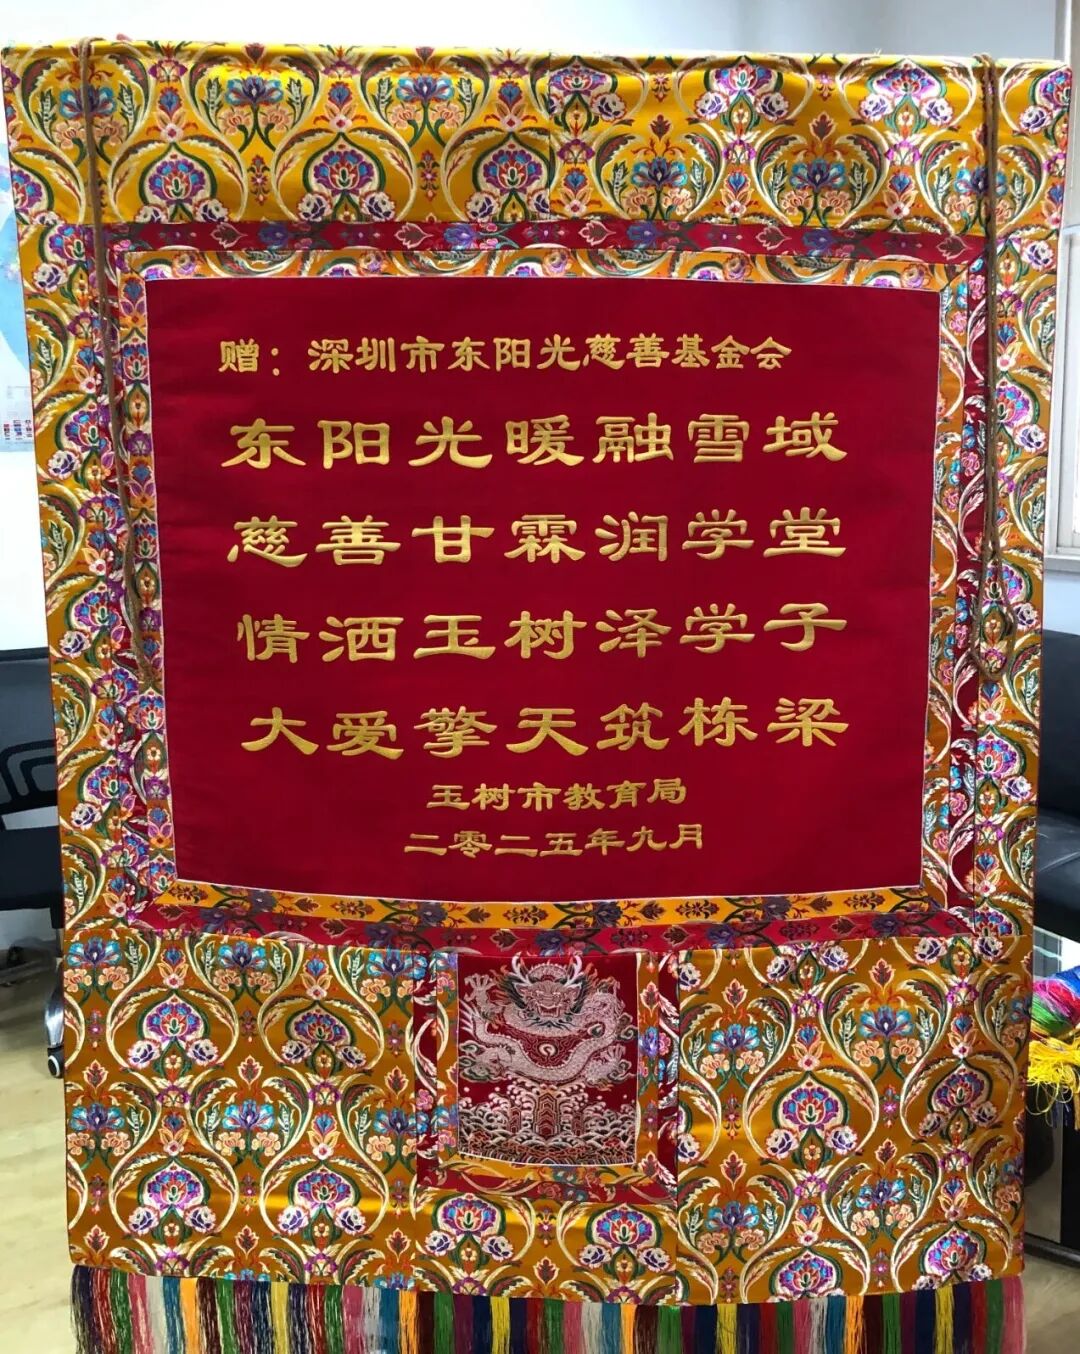 赠：深圳市东阳光慈善基金会
东阳光暖融雪域
慈善甘霖润学堂
情洒玉树泽学子
大爱擎天筑栋梁
玉树市教育局
二零二五年九月